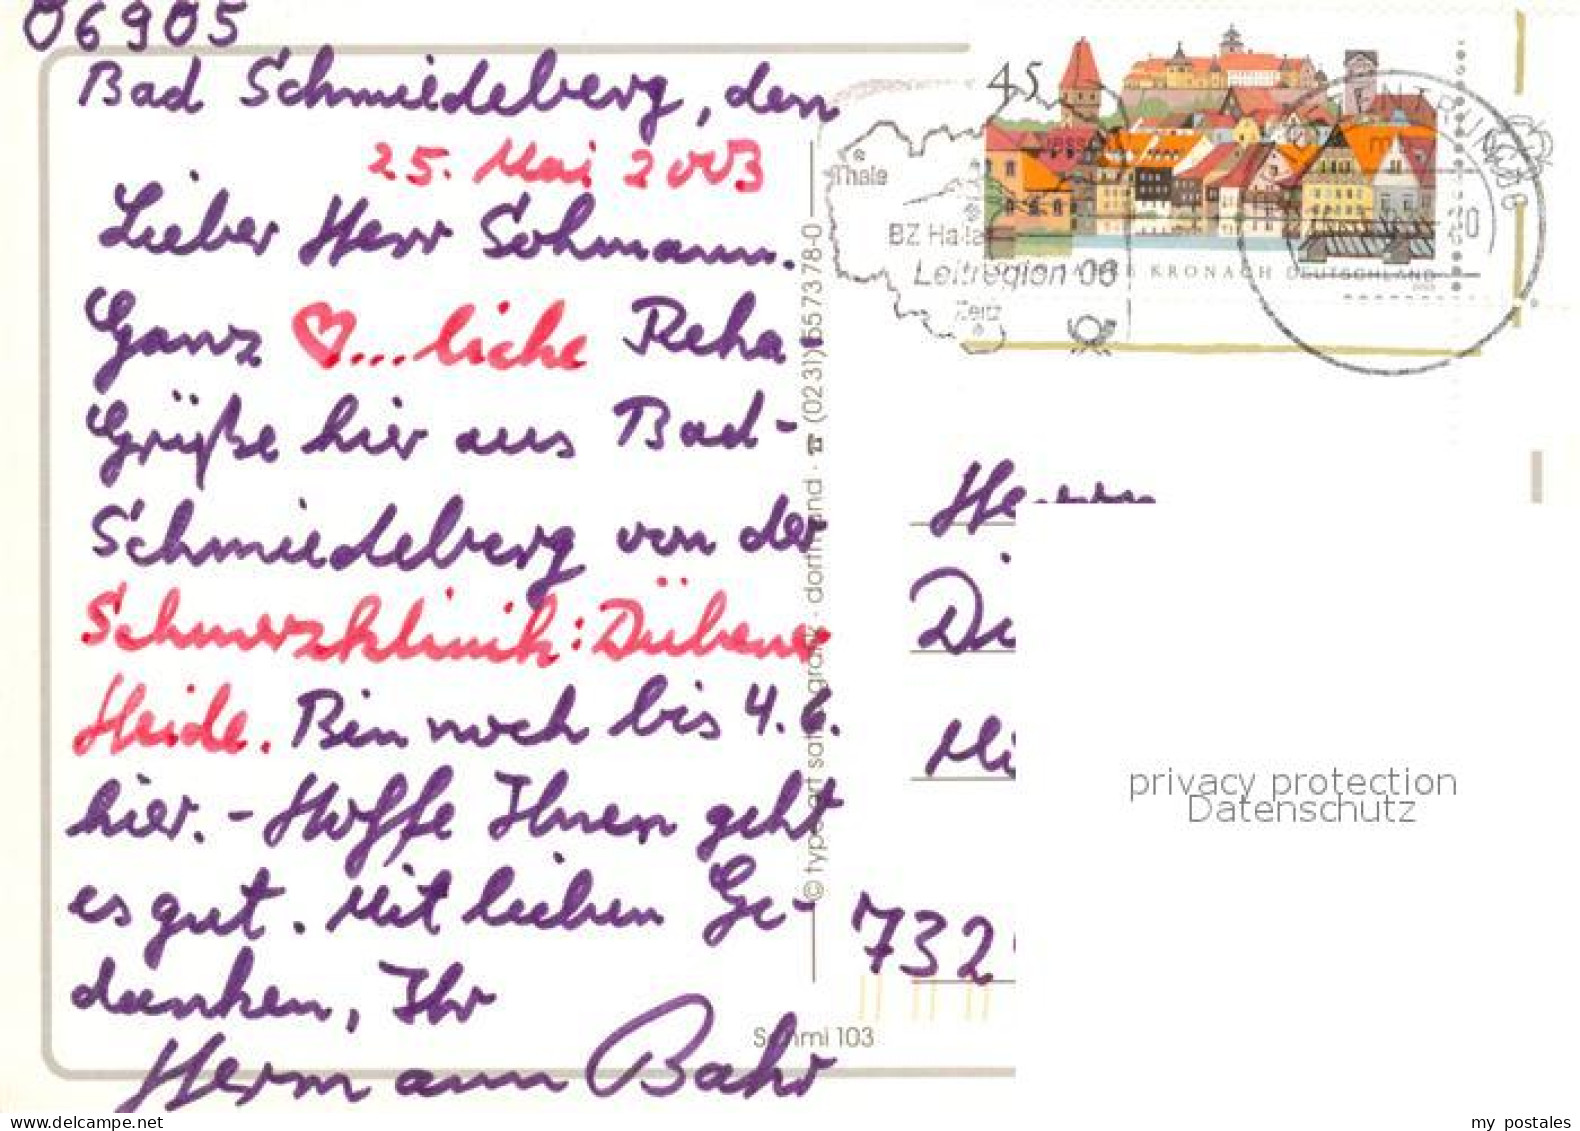 06905
Bad Schmiedeberg, den
25. Mai 2003
Lieber Herr Sohmann.
Ganz ♡...liche Reha
Grüße hier aus Bad-
Schmiedeberg von der
Schmerzklinik: Dübener
Heide. Bin noch bis 4. 6.
hier. - Hoffe Ihnen geht
es gut. Mit lieben Ge-
danken, Ihr
Hermann Bahr
45
KRONACH DEUTSCHLAND
Thale
BZ Halle
Leitregion 06
Zeitz
(0231) 5573 78-0
Schmi 103
732
privacy protection
Datenschutz
my postales
www.delcampe.net